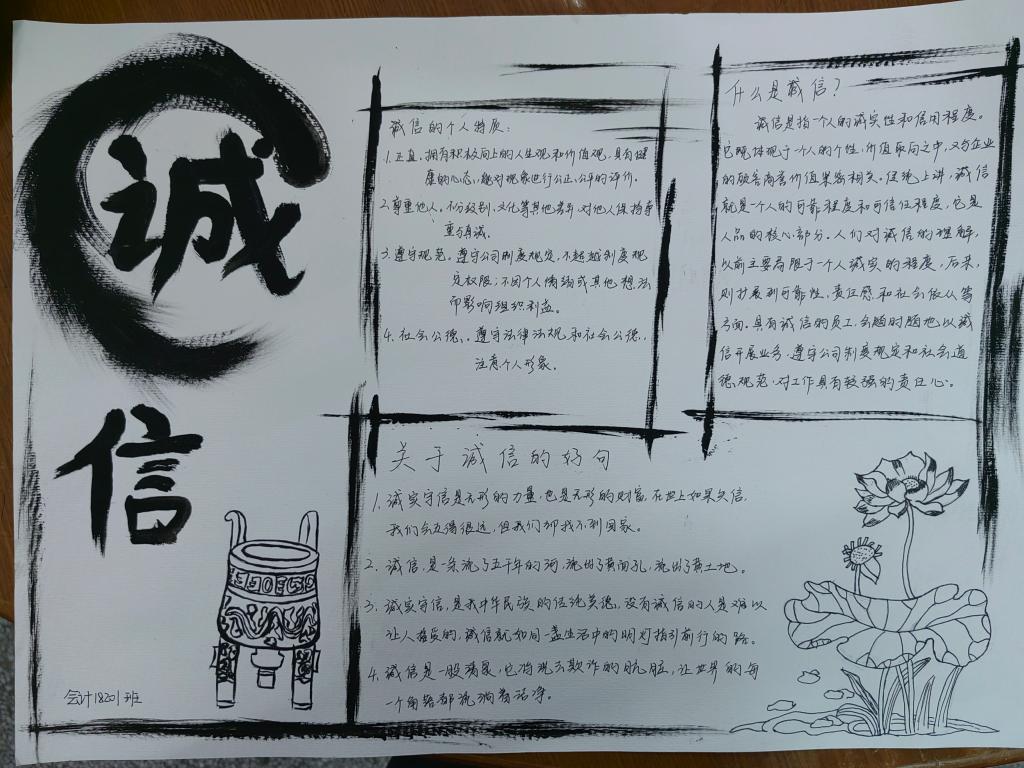 诚
信
诚信的个人特质：
1. 正直。拥有积极向上的人生观和价值观，具有健
康的心态，能对现象进行公正、公平的评价。
2. 尊重他人。不分级别、文化等其他差异，对他人保持尊
重与真诚。
3. 遵守规范。遵守公司制度规定，不超越制度规
定权限；不因个人情绪或其他想法
而影响组织利益。
4. 社会公德。遵守法律法规和社会公德，
注意个人形象。
什么是诚信？
诚信是指一个人的诚实性和信用程度。
它既体现于一个人的个性、价值取向之中，又与企业
的顾客商誉价值紧密相关。传统上讲，诚信
就是个人的可靠程度和可信任程度，它是
人品的核心部分。人们对诚信的理解，
以前主要局限于一个人诚实的程度，后来，
则扩展到可靠性、责任感和社会依从等
方面。具有诚信的员工，会随时随地以诚
信开展业务，遵守公司制度规定和社会道
德规范，对工作具有较强的责任心。
关于诚信的好句
1. 诚实守信是无形的力量，也是无形的财富，在世上如果失信，
我们会走得很远，但我们却找不到回家。
2. 诚信，是一条流了五千年的河，流出了黄面孔，流出了黄土地。
3. 诚实守信，是我中华民族的传统美德，没有诚信的人是难以
让人接受的，诚信就如同一盏生活中的明灯指引前行的路。
4. 诚信是一股清泉，它将洗去欺诈的肮脏，让世界的每
一个角落都流淌着洁净。
会计18201班